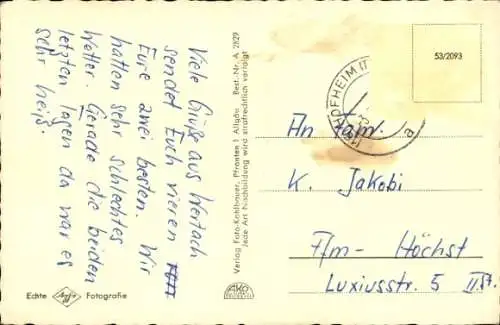 Viele Grüße aus Wertach
sendet Euch vieren
Eure zwei besten. Wir
hatten sehr schlechtes
Wetter. Gerade die beiden
letzten Tagen da war es
sehr heiß.
Echte Agfa Fotografie
Verlag Foto-Kohlbauer, Pfronten 1 Allgäu Best.-Nr. A 2829
Jede Art Nachbildung wird strafrechtlich verfolgt
AKO
53/2093
An Fam.
K. Jakobi
Ffm- Höchst
Luxiusstr. 5 II St.